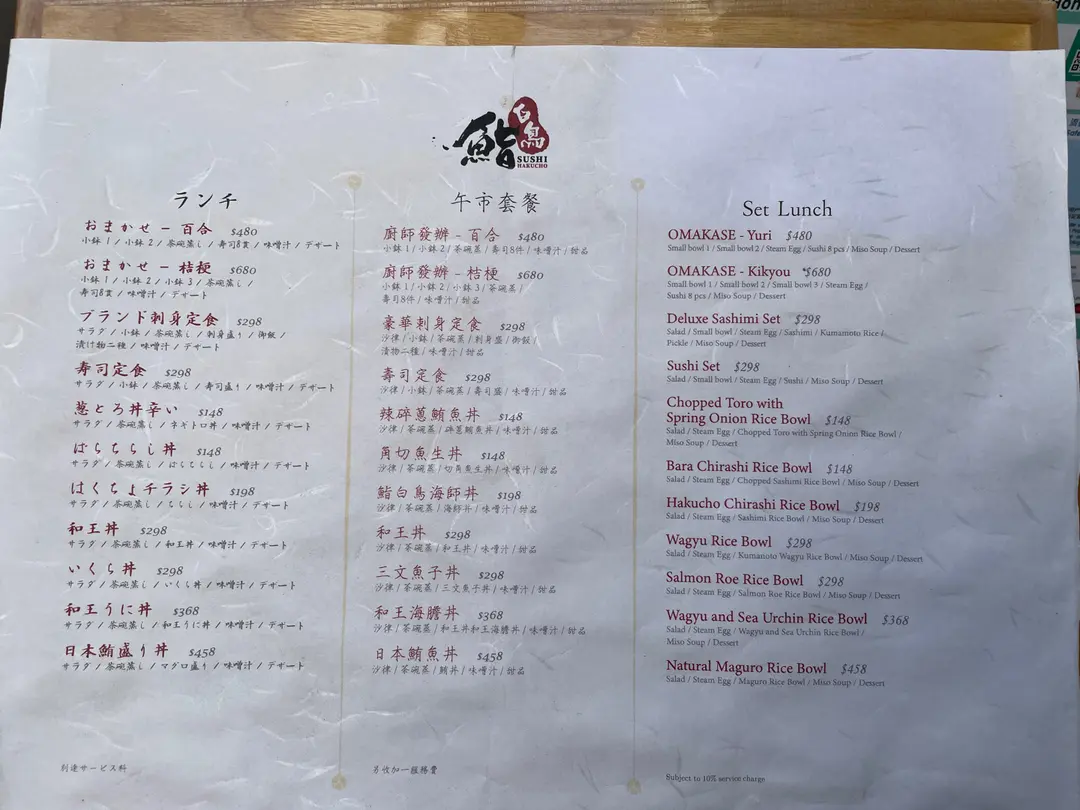 鮨
白鳥
SUSHI
HAKUCHO
ランチ
おまかせ – 百合 $480
小鉢 1 / 小鉢 2 / 茶碗蒸し / 寿司8貫 / 味噌汁 / デザート
おまかせ – 桔梗 $680
小鉢 1 / 小鉢 2 / 小鉢 3 / 茶碗蒸し /
寿司8貫 / 味噌汁 / デザート
ブランド刺身定食 $298
サラダ / 小鉢 / 茶碗蒸し / 刺身盛り / 御飯 /
漬け物二種 / 味噌汁 / デザート
寿司定食 $298
サラダ / 小鉢 / 茶碗蒸し / 寿司盛り / 味噌汁 / デザート
葱とろ丼辛い $148
サラダ / 茶碗蒸し / ネギトロ丼 / 味噌汁 / デザート
ばらちらし丼 $148
サラダ / 茶碗蒸し / ばらちらし / 味噌汁 / デザート
はくちょチラシ丼 $198
サラダ / 茶碗蒸し / ちらし / 味噌汁 / デザート
和王丼 $298
サラダ / 茶碗蒸し / 和王丼 / 味噌汁 / デザート
いくら丼 $298
サラダ / 茶碗蒸し / いくら丼 / 味噌汁 / デザート
和王うに丼 $368
サラダ / 茶碗蒸し / 和王うに丼 / 味噌汁 / デザート
日本鮪盛り丼 $458
サラダ / 茶碗蒸し / マグロ盛り / 味噌汁 / デザート
別途サービス料
午市套餐
廚師發辦 – 百合 $480
小鉢 1 / 小鉢 2 / 茶碗蒸 / 寿司8件 / 味噌汁 / 甜品
廚師發辦 – 桔梗 $680
小鉢 1 / 小鉢 2 / 小鉢 3 / 茶碗蒸 /
寿司8件 / 味噌汁 / 甜品
豪華刺身定食 $298
沙律 / 小鉢 / 茶碗蒸 / 刺身盛 / 御飯 /
漬物二種 / 味噌汁 / 甜品
壽司定食 $298
沙律 / 小鉢 / 茶碗蒸 / 壽司盛 / 味噌汁 / 甜品
辣碎蔥鮪魚丼 $148
沙律 / 茶碗蒸 / 碎蔥鮪魚丼 / 味噌汁 / 甜品
角切魚生丼 $148
沙律 / 茶碗蒸 / 切角魚生丼 / 味噌汁 / 甜品
鮨白鳥海師丼 $198
沙律 / 茶碗蒸 / 海鮮丼 / 味噌汁 / 甜品
和王丼 $298
沙律 / 茶碗蒸 / 和王丼 / 味噌汁 / 甜品
三文魚子丼 $298
沙律 / 茶碗蒸 / 三文魚子丼 / 味噌汁 / 甜品
和王海膽丼 $368
沙律 / 茶碗蒸 / 和王丼和王海膽丼 / 味噌汁 / 甜品
日本鮪魚丼 $458
沙律 / 茶碗蒸 / 鮪丼 / 味噌汁 / 甜品
另收加一服務費
Set Lunch
OMAKASE - Yuri $480
Small bowl 1 / Small bowl 2 / Steam Egg / Sushi 8 pcs / Miso Soup / Dessert
OMAKASE - Kikyou *$680
Small bowl 1 / Small bowl 2 / Small bowl 3 / Steam Egg /
Sushi 8 pcs / Miso Soup / Dessert
Deluxe Sashimi Set $298
Salad / Small bowl / Steam Egg / Sashimi / Kumamoto Rice /
Pickle / Miso Soup / Dessert
Sushi Set $298
Salad / Small bowl / Steam Egg / Sushi / Miso Soup / Dessert
Chopped Toro with
Spring Onion Rice Bowl $148
Salad / Steam Egg / Chopped Toro with Spring Onion Rice Bowl /
Miso Soup / Dessert
Bara Chirashi Rice Bowl $148
Salad / Steam Egg / Chopped Sashimi Rice Bowl / Miso Soup / Dessert
Hakucho Chirashi Rice Bowl $198
Salad / Steam Egg / Sashimi Rice Bowl / Miso Soup / Dessert
Wagyu Rice Bowl $298
Salad / Steam Egg / Kumanoto Wagyu Rice Bowl / Miso Soup / Dessert
Salmon Roe Rice Bowl $298
Salad / Steam Egg / Salmon Roe Rice Bowl / Miso Soup / Dessert
Wagyu and Sea Urchin Rice Bowl $368
Salad / Steam Egg / Wagyu and Sea Urchin Rice Bowl /
Miso Soup / Dessert
Natural Maguro Rice Bowl $458
Salad / Steam Egg / Maguro Rice Bowl / Miso Soup / Dessert
Subject to 10% service charge